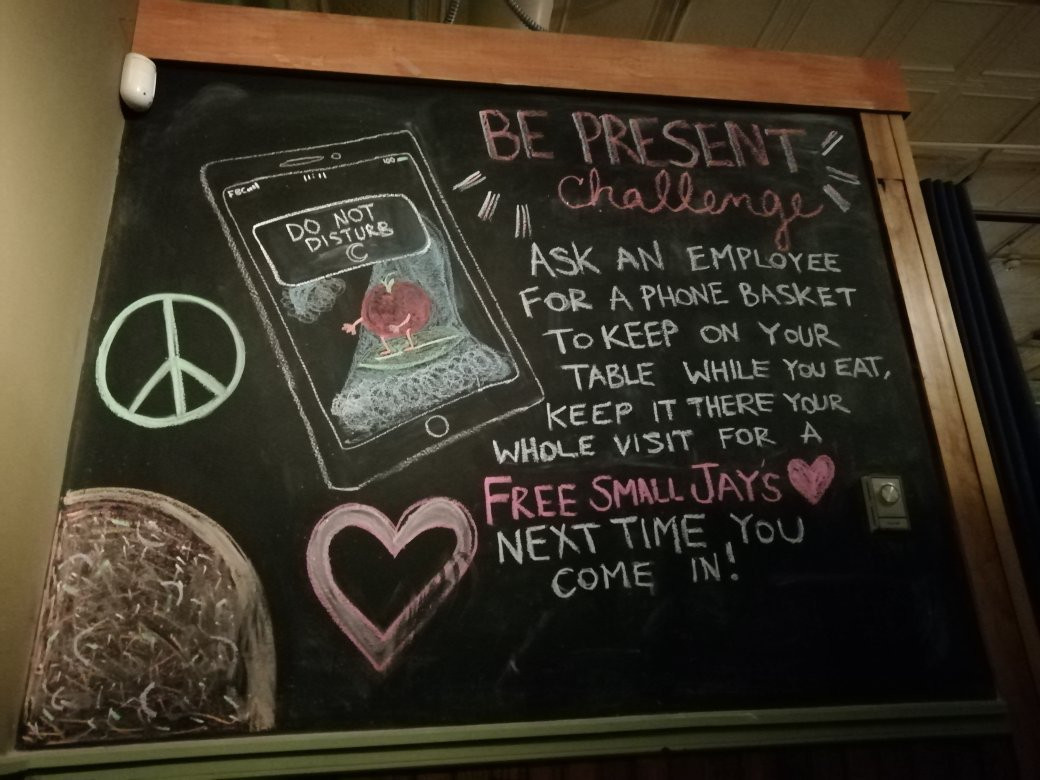 BE PRESENT
challenge
ASK AN EMPLOYEE
FOR A PHONE BASKET
TO KEEP ON YOUR
TABLE WHILE YOU EAT,
KEEP IT THERE YOUR
WHOLE VISIT FOR A
FREE SMALL JAY'S
NEXT TIME YOU
COME IN!
100
DO NOT
DISTURB